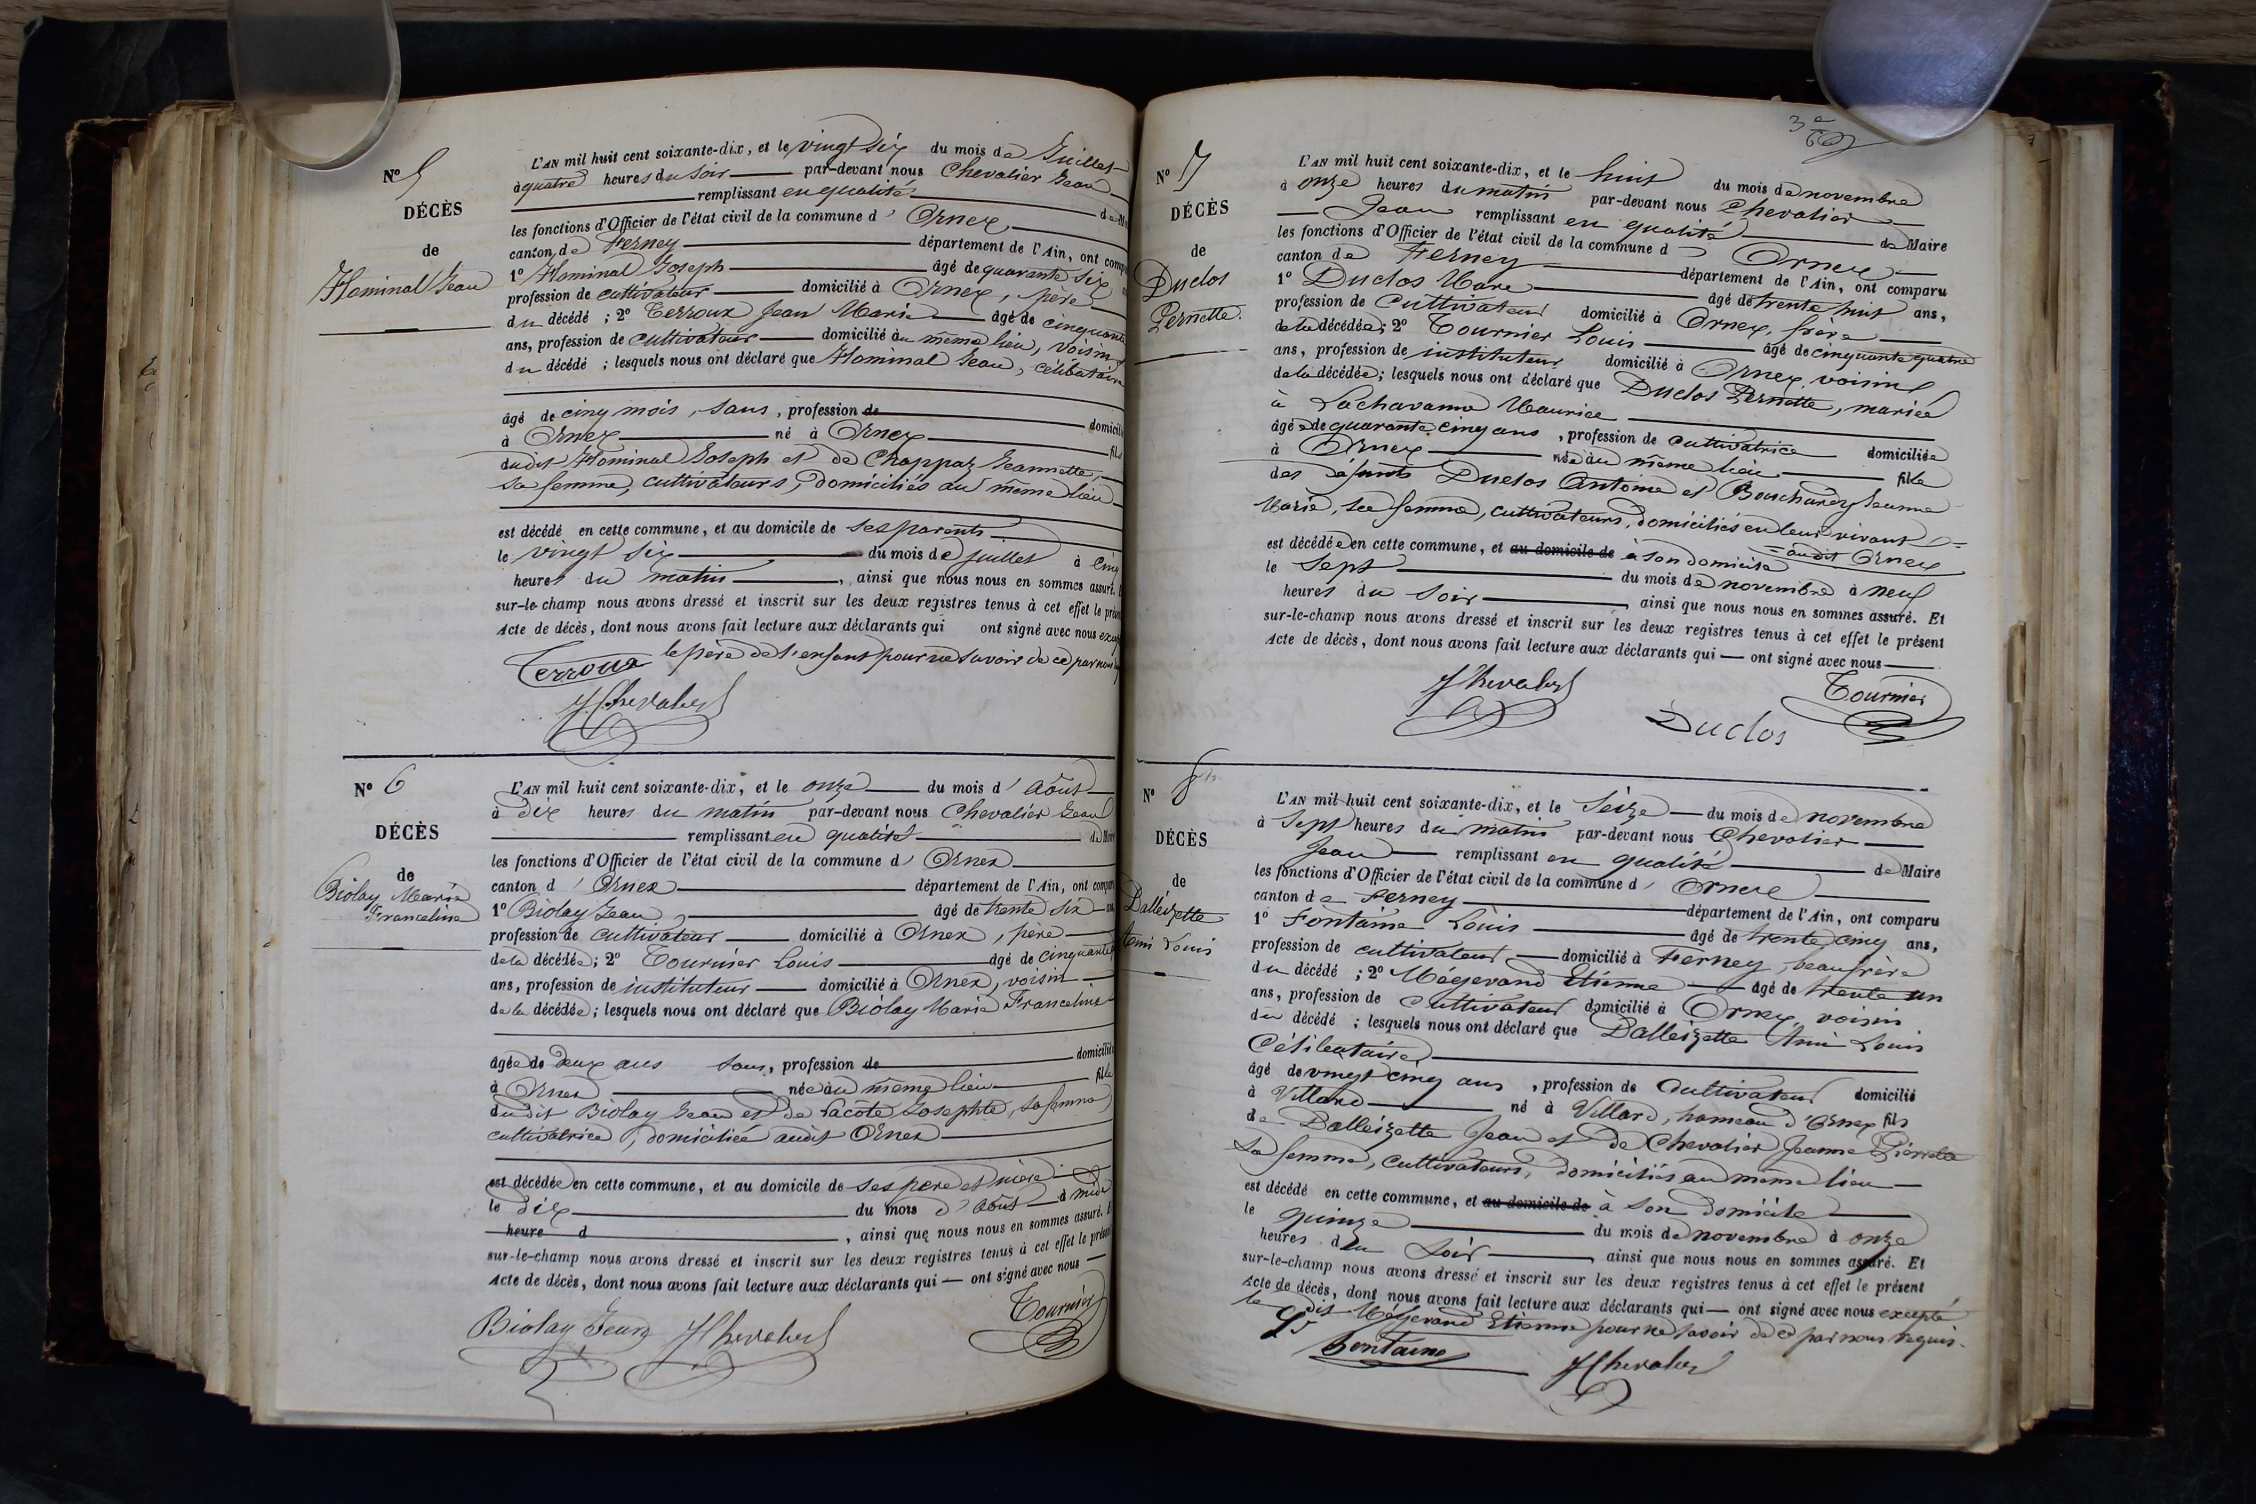 N° 5
DÉCÈS
de
Hominal Jean
L'AN mil huit cent soixante-dix, et le vingt six du mois de Juillet
à quatre heures du soir par-devant nous Chevalier Jean
remplissant en qualité de
les fonctions d'Officier de l'état civil de la commune d' Ornex
canton de Ferney département de l'Ain, ont
1° Hominal Joseph âgé de quarante six
profession de cultivateur domicilié à Ornex, père
du décédé ; 2° Terroux Jean Marie âgé de cinquante
ans, profession de cultivateur domicilié au même lieu, voisin
du décédé ; lesquels nous ont déclaré que Hominal Jean, célibataire
âgé de cinq mois, sans, profession de domicilié
à Ornex né à Ornex fils
dudit Hominal Joseph et de Chappaz Jeannette,
sa femme, cultivateurs, domiciliés au même lieu
est décédé en cette commune, et au domicile de ses parents
le vingt six du mois de juillet à cinq
heures du matin, ainsi que nous nous en sommes assuré.
sur-le-champ nous avons dressé et inscrit sur les deux registres tenus à cet effet le
Acte de décès, dont nous avons fait lecture aux déclarants qui ont signé avec nous
le père de l'enfant pour ne savoir de ce par nous
Terroux
J Chevalier
N° 6
DÉCÈS
de
Biolay Marie
Franceline
L'AN mil huit cent soixante-dix, et le onze du mois d' Août
à dix heures du matin par-devant nous Chevalier Jean
remplissant en qualité de
les fonctions d'Officier de l'état civil de la commune d' Ornex
canton d' Ornex département de l'Ain, ont
1° Biolay Jean âgé de trente six
profession de cultivateur domicilié à Ornex, père
de la décédée ; 2° Tournier Louis âgé de cinquante
ans, profession de instituteur domicilié à Ornex, voisin
de la décédée ; lesquels nous ont déclaré que Biolay Marie Franceline
âgée de deux ans sans, profession de domiciliée
à Ornex née au même lieu fille
dudit Biolay Jean et de Lacôte Josephte, sa femme
cultivatrice, domiciliée audit Ornex
est décédée en cette commune, et au domicile de ses père et mère
le dix du mois d' Août à midi
heure d , ainsi que nous nous en sommes assuré.
sur-le-champ nous avons dressé et inscrit sur les deux registres tenus à cet effet le
Acte de décès, dont nous avons fait lecture aux déclarants qui ont signé avec nous
Biolay Jean J Chevalier Tournier
3e
N° 7
DÉCÈS
de
Duclos
Pernette.
L'AN mil huit cent soixante-dix, et le huit du mois de novembre
à onze heures du matin par-devant nous Chevalier
Jean remplissant en qualité de Maire
les fonctions d'Officier de l'état civil de la commune d' Ornex
canton de Ferney département de l'Ain, ont comparu
1° Duclos Marc âgé de trente huit ans,
profession de cultivateur domicilié à Ornex, frère
de la décédée ; 2° Tournier Louis âgé de cinquante quatre
ans, profession de instituteur domicilié à Ornex, voisin
de la décédée ; lesquels nous ont déclaré que Duclos Pernette, mariée
à Lachavanne Maurice
âgée de quarante cinq ans, profession de cultivatrice domiciliée
à Ornex née au même lieu fille
des défunts Duclos Antoine et Bouchardy Jeanne
Marie, sa femme, cultivateurs, domiciliés en leur vivant
= audit Ornex
est décédée en cette commune, et au domicile de à son domicile
le sept du mois de novembre à neuf
heures du soir, ainsi que nous nous en sommes assuré. Et
sur-le-champ nous avons dressé et inscrit sur les deux registres tenus à cet effet le présent
Acte de décès, dont nous avons fait lecture aux déclarants qui ont signé avec nous
J Chevalier Tournier
Duclos
N° 8
DÉCÈS
de
Balleizette
Ami Louis
L'AN mil huit cent soixante-dix, et le seize du mois de novembre
à sept heures du matin par-devant nous Chevalier
Jean remplissant en qualité de Maire
les fonctions d'Officier de l'état civil de la commune d' Ornex
canton de Ferney département de l'Ain, ont comparu
1° Fontaine Louis âgé de trente cinq ans,
profession de cultivateur domicilié à Ferney, beau frère
du décédé ; 2° Mégevand Etienne âgé de trente un
ans, profession de cultivateur domicilié à Ornex voisin
du décédé ; lesquels nous ont déclaré que Balleizette Ami Louis
Célibataire
âgé de vingt cinq ans, profession de cultivateur domicilié
à Villard né à Villard, hameau d'Ornex fils
de Balleizette Jean et de Chevalier Jeanne Pierrette
sa femme, cultivateurs, domiciliés au même lieu
est décédé en cette commune, et au domicile de à son domicile
le quinze du mois de novembre à onze
heures du soir, ainsi que nous nous en sommes assuré. Et
sur-le-champ nous avons dressé et inscrit sur les deux registres tenus à cet effet le présent
Acte de décès, dont nous avons fait lecture aux déclarants qui ont signé avec nous excepté
le dit Mégevand Etienne pour ne savoir de ce par nous requis.
Fontaine J Chevalier